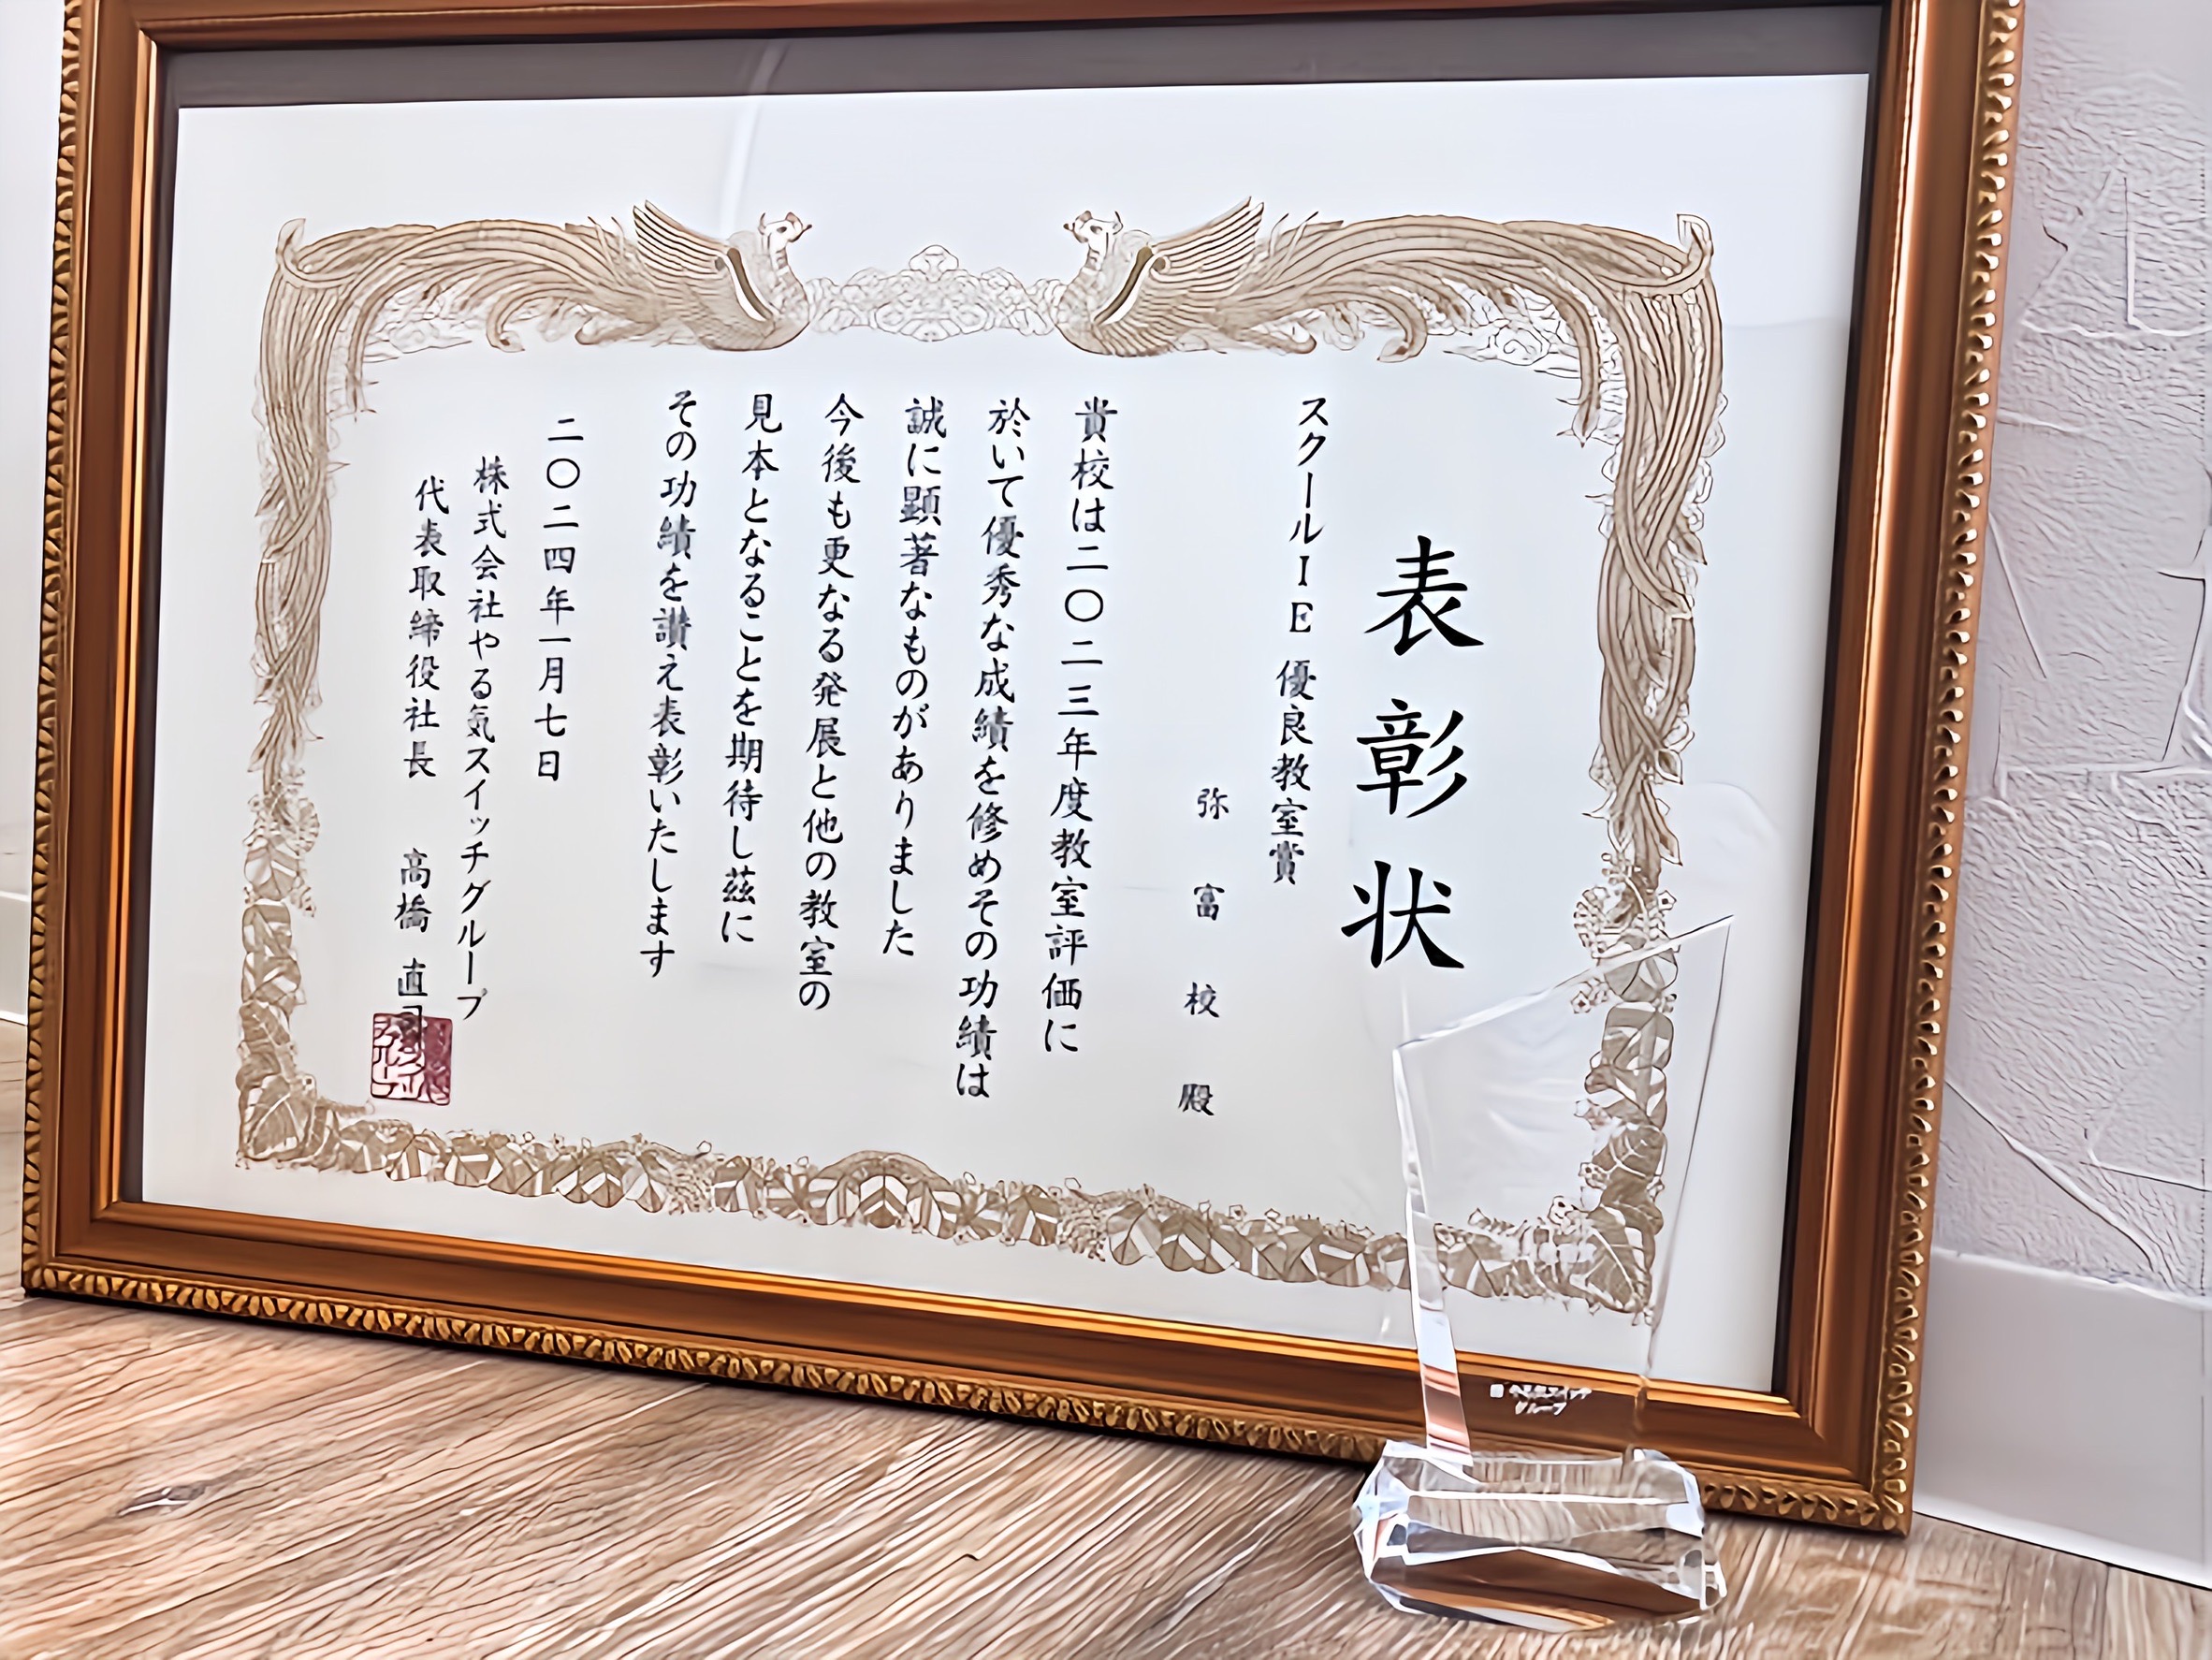 表彰状
スクールIE 優良教室賞
弥富校殿
貴校は二〇二三年度教室評価に
於いて優秀な成績を修めその功績は
誠に顕著なものがありました
今後も更なる発展と他の教室の
見本となることを期待し茲に
その功績を讃え表彰いたします
二〇二四年一月七日
株式会社やる気スイッチグループ
代表取締役社長 高橋 直司
グループ